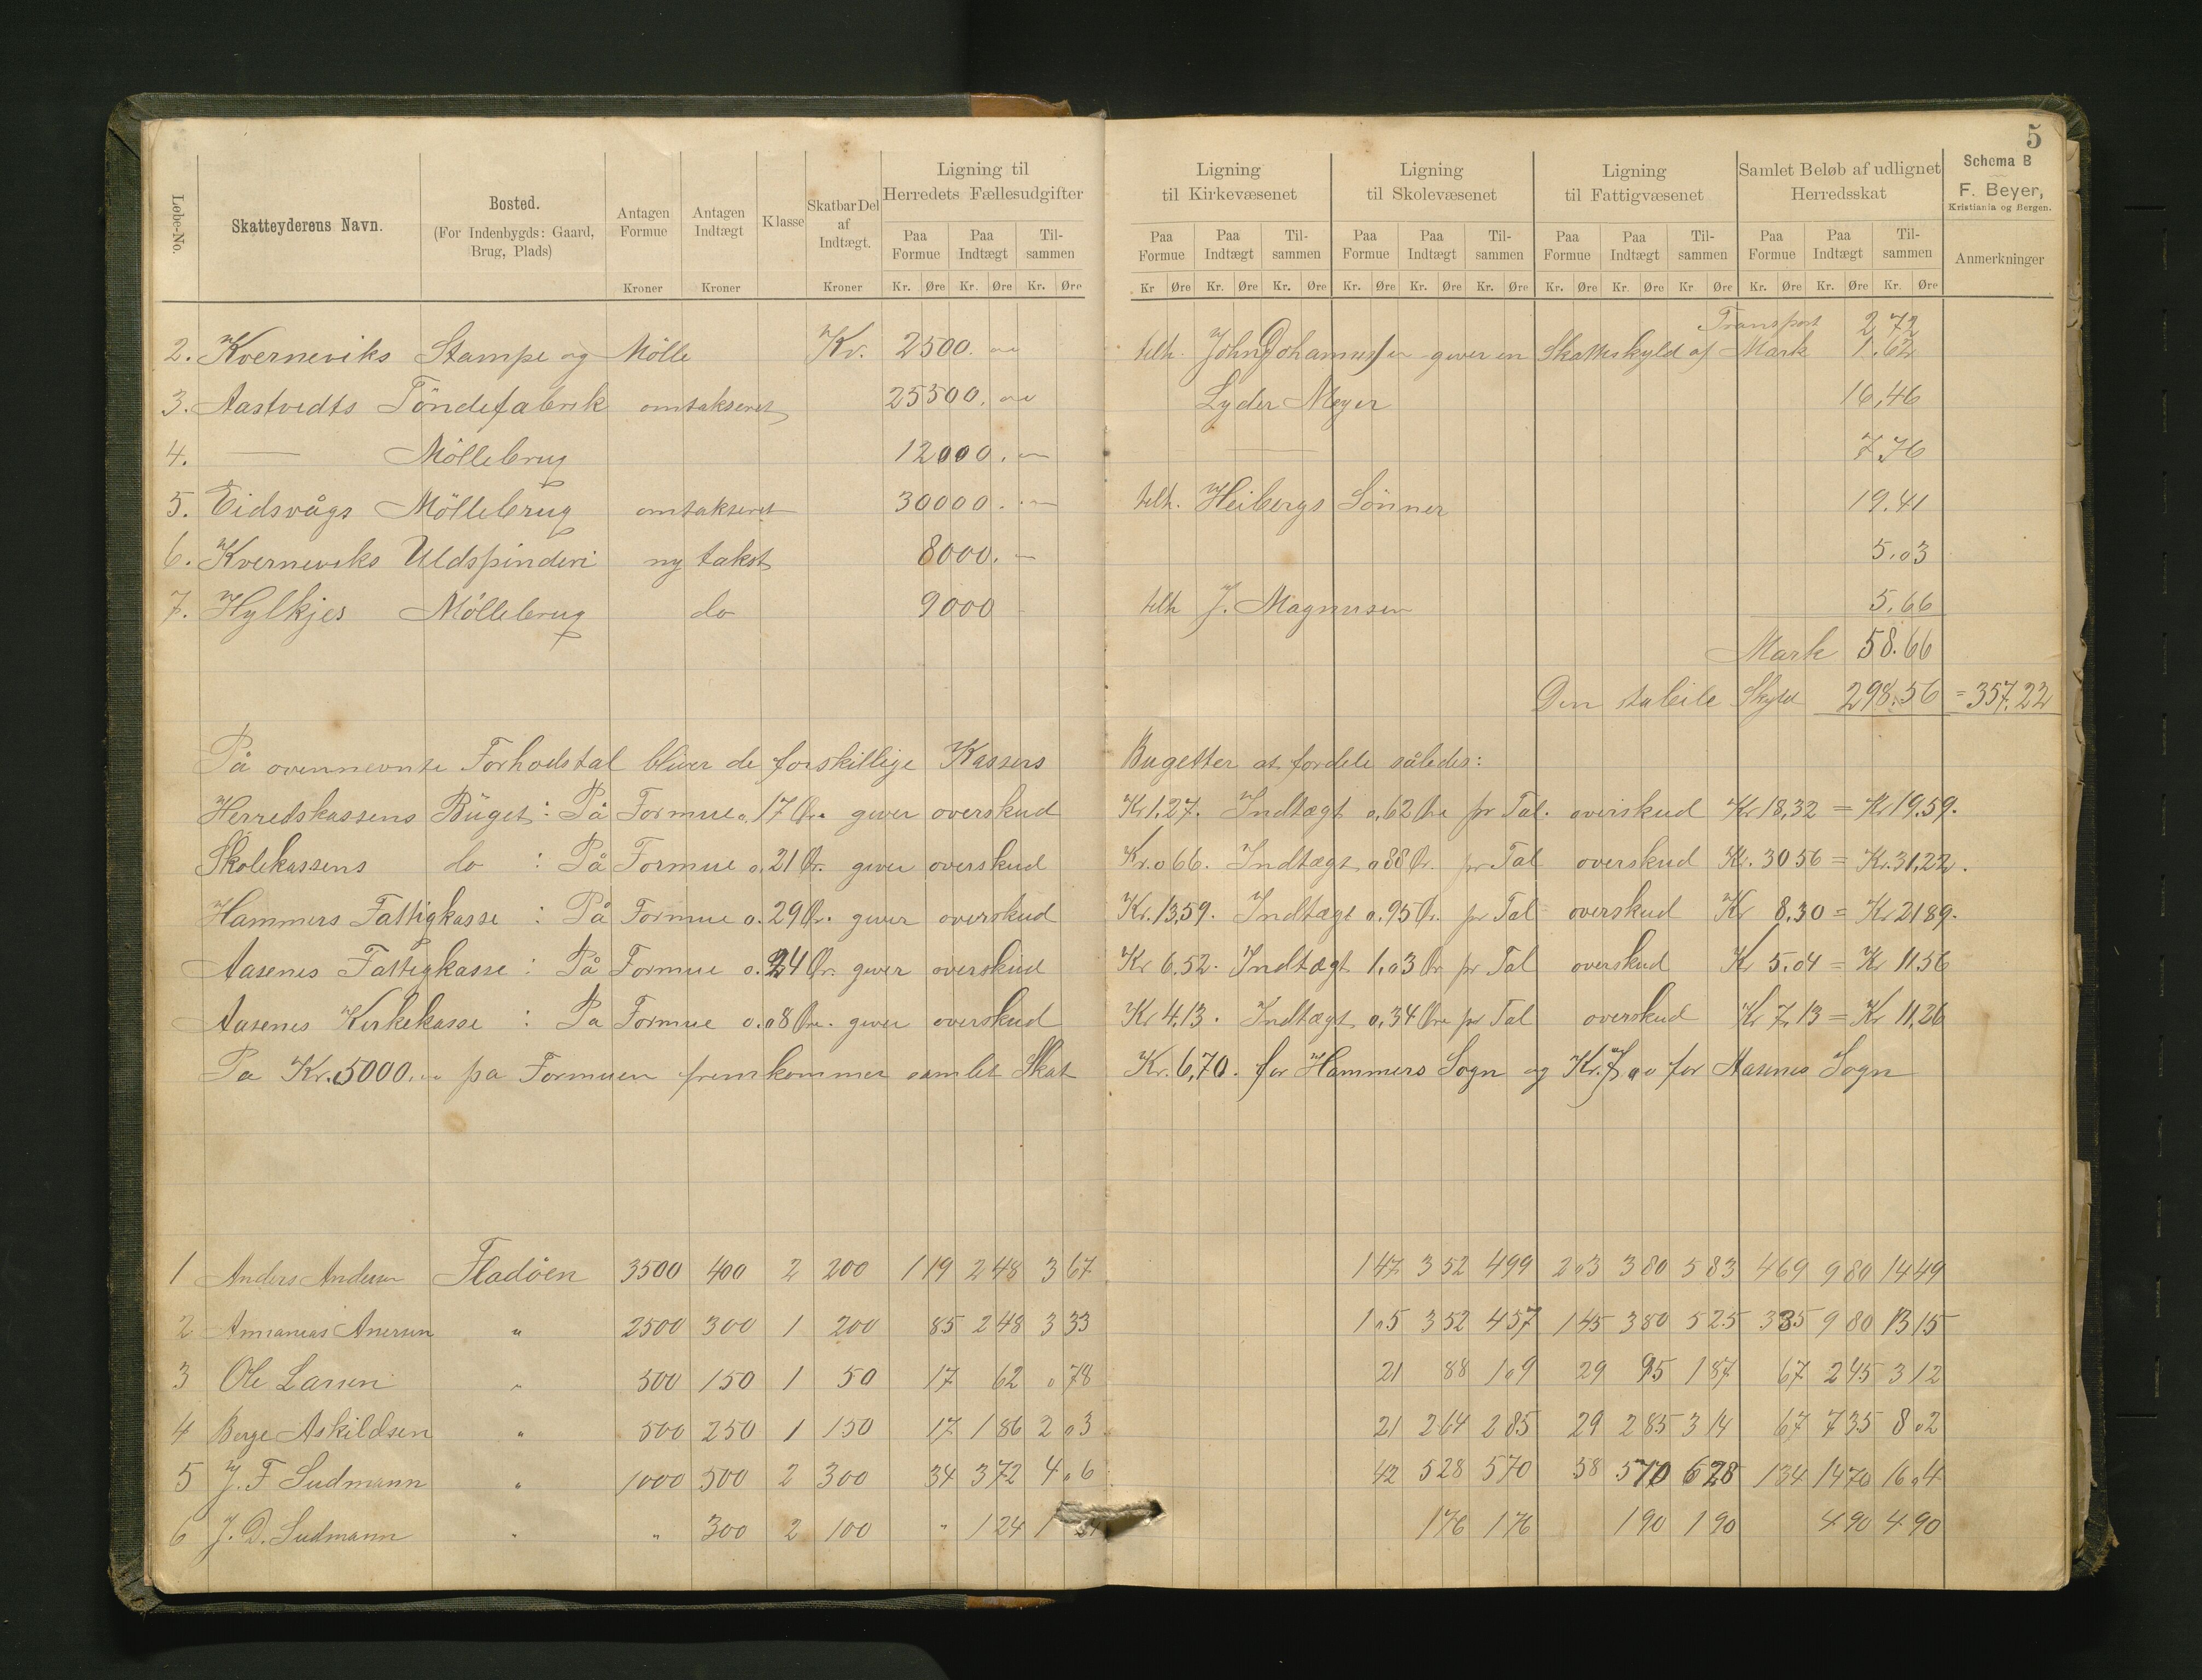 5
Løbe-No.
Skatteyderens Navn.
Bosted.
(For Indenbygds: Gaard,
Brug, Plads)
Antagen
Formue
Kroner
Antagen
Indtægt
Kroner
Klasse
Skatbar Del
af
Indtægt.
Kroner
Ligning til
Herredets Fællesudgifter
Paa Formue Paa Indtægt Til-sammen
Kr. Øre Kr. Øre Kr. Øre
Ligning
til Kirkevæsenet
Paa Formue Paa Indtægt Til-sammen
Kr Øre Kr. Øre Kr. Øre
Ligning
til Skolevæsenet
Paa Formue Paa Indtægt Til-sammen
Kr. Øre Kr. Øre Kr. Øre
Ligning
til Fattigvæsenet
Paa Formue Paa Indtægt Til-sammen
Kr. Øre Kr. Øre Kr Øre
Samlet Beløb af udlignet
Herredsskat
Paa Formue Paa Indtægt Til-sammen
Kr. Øre Kr. Øre Kr. Øre
Schema B
F. Beyer,
Kristiania og Bergen.
Anmerkninger
Transport 2,72
2. Kverneviks Stampe og Mølle Kr. 2500. oo tilh. John Johannessen giver en Skatteskyld af Mark 1.62
3. Aastvedts Töndefabrik omtakseret 25500. oo Lyder Meyer 16,46
4. — Möllebrug 12000. — — 7.76
5. Eidsvågs Möllebrug omtakseret 30000. — tilh. Heibergs Sönner 19.41
6. Kverneviks Uldspinderi ny takst 8000. — 5.03
7. Hylkjes Möllebrug do 9000 tilh J. Magnusen 5.66
Mark 58.66
Den stabile Skyld 298.56 = 357.22
På ovennevnte Forholdstal bliver de forskillige Kassers Bugetter at fordele således:
Herredskassens Büget: På Formue o. 17 Ør. giver overskud Kr 1,27. Indtægt o,62 Øre pr Tal. overskud Kr 18,32 = Kr 19.59.
Skolekassens do : På Formue o. 21 Ør. giver overskud Kr. o 66. Indtægt o 88 Ør. pr Tal overskud Kr. 30 56 = Kr. 31,22.
Hammers Fattigkasse : På Formue o. 29 Ør. giver overskud Kr. 13,59. Indtægt o.95 Ør. pr Tal overskud Kr 8,30 = Kr 21 89.
Aasenes Fattigkasse : På Formue o. 24 Ør. giver overskud Kr 6,52. Indtægt 1,o3 Ør pr Tal overskud Kr 5.04 = Kr 11.56
Aasenes Kirkekasse : Pa Formue o.o8 Øre. giver overskud Kr 4,13. Indtægt o,34 Øre pr Tal overskud Kr 7,13 = Kr 11,26
Pa Kr. 5000.oo pa Formuen fremkommer samlet Skat Kr. 6,70. for Hammers Sogn og Kr. for Aasenes Sogn
1 Anders Andersen Fladöen 3500 400 2 200 1 19 2 48 3 67 1 47 3 52 4 99 2 o3 3 80 5 83 4 69 9 80 14 49
2 Annanias Anersen " 2500 300 1 200 85 2 48 3 33 1 o5 3 52 4 57 1 45 3 80 5 25 3 35 9 80 13 15
3 Ole Larsen " 500 150 1 50 17 62 o 78 21 88 1 o9 29 95 1 87 67 2 45 3 12
4 Berge Askildsen " 500 250 1 150 17 1 86 2 o3 21 2 64 2 85 29 2 85 3 14 67 7 35 8 o2
5 J. F Sudmann " 1000 500 2 300 34 3 72 4 o6 42 5 28 5 70 58 5 70 6 28 1 34 14 70 16 o4
6 J. D. Sudmann " " 300 2 100 " 1 24 1 1 76 1 76 1 90 1 90 4 90 4 90